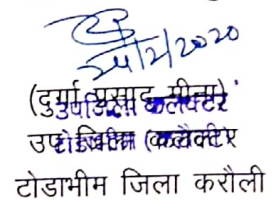 24/2/2020
(दुर्गा प्रसाद मीना)
उपजिला कलेक्टर
उप जिला कलेक्टर
टोडाभीम जिला करौली